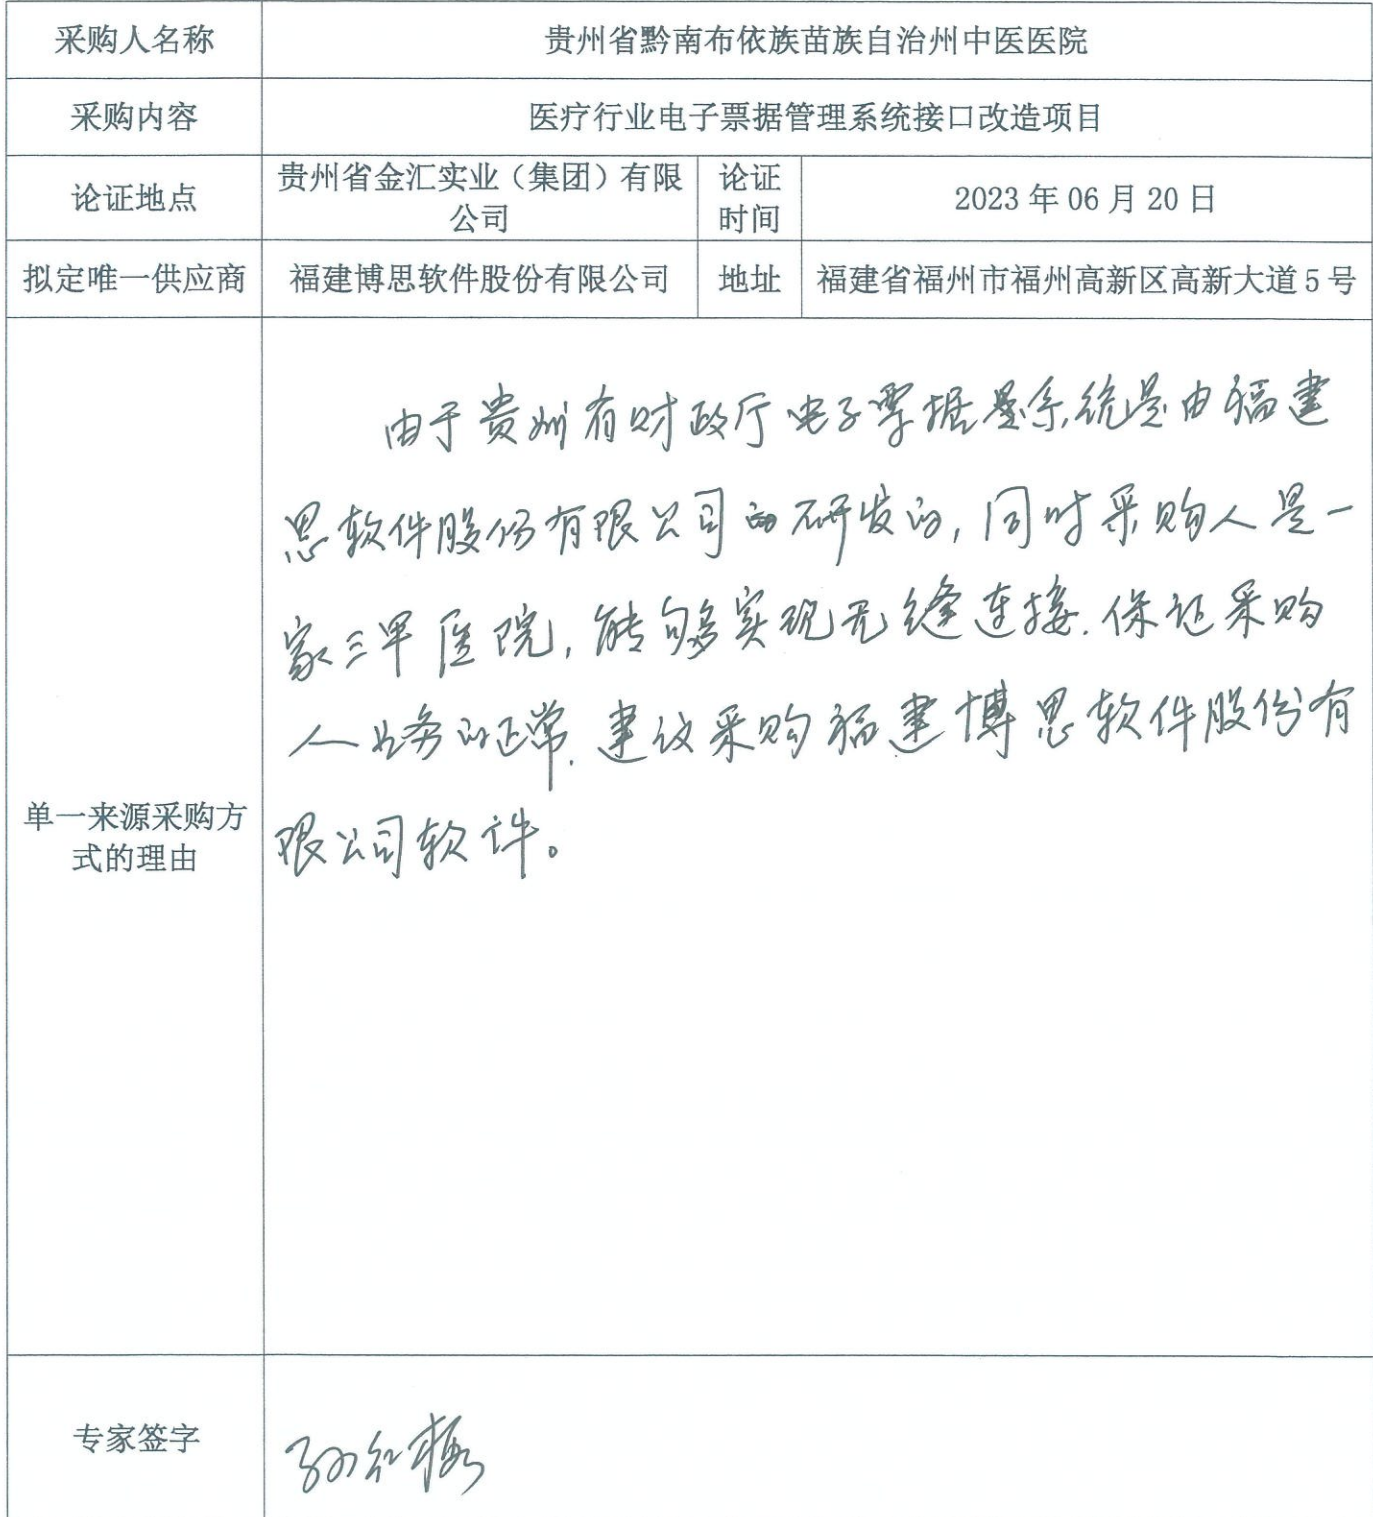 采购人名称 贵州省黔南布依族苗族自治州中医医院
采购内容 医疗行业电子票据管理系统接口改造项目
论证地点 贵州省金汇实业（集团）有限公司 论证时间 2023年06月20日
拟定唯一供应商 福建博思软件股份有限公司 地址 福建省福州市福州高新区高新大道5号
单一来源采购方式的理由
由于贵州省财政厅电子票据系统是由福建
思软件股份有限公司研发的,同时采购人是一
家三甲医院,能够实现无缝连接.保证采购
人业务的正常.建议采购福建博思软件股份有
限公司软件。
专家签字 孙红梅